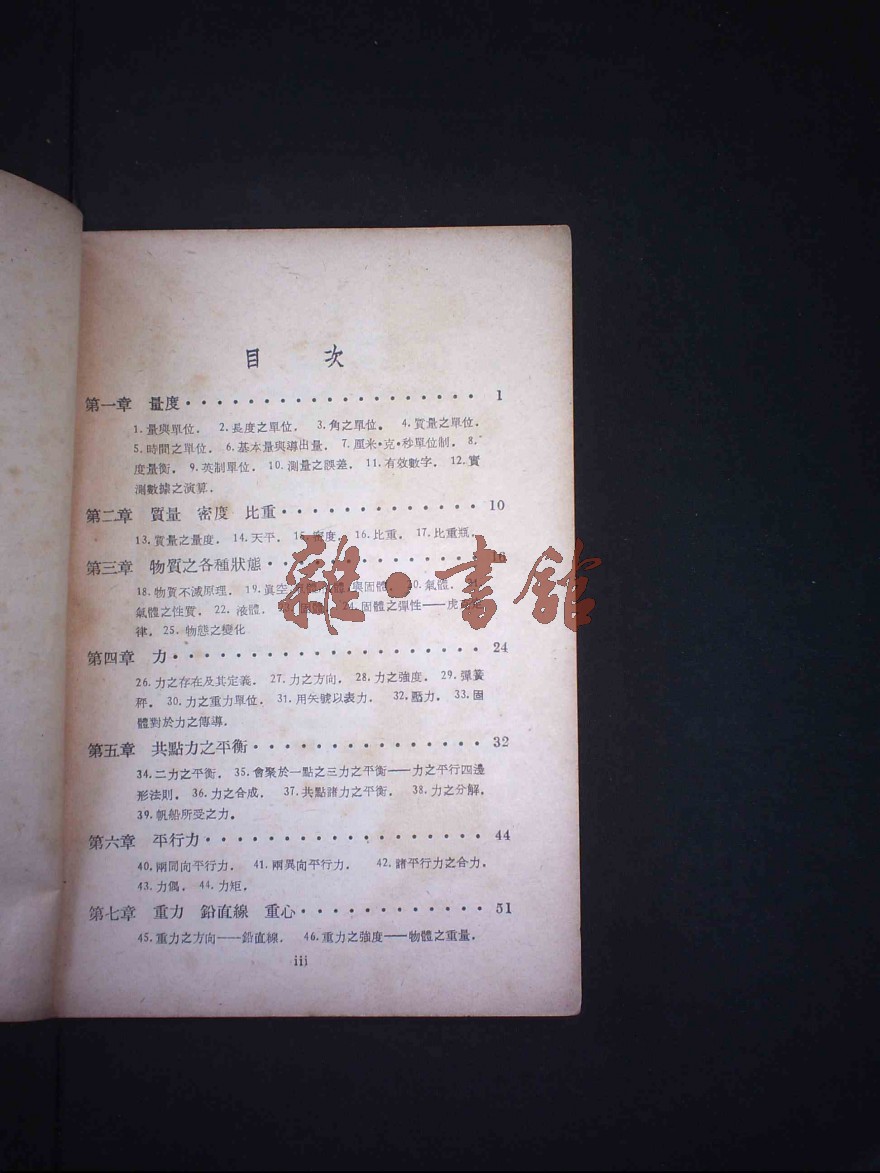 目 次
第一章 量度 1
1.量與單位. 2.長度之單位. 3.角之單位. 4.質量之單位.
5.時間之單位. 6.基本量與導出量. 7.厘米·克·秒單位制. 8.
度量衡. 9.英制單位. 10.測量之誤差. 11.有效數字. 12.實
測數據之演算.
第二章 質量 密度 比重 10
13.質量之量度. 14.天平. 15.密度. 16.比重. 17.比重瓶.
第三章 物質之各種狀態
18.物質不滅原理. 19.眞空 與固體. 氣體.
氣體之性質. 22.液體. 固體之彈性——虎克
律. 25.物態之變化
雜·書館
第四章 力 24
26.力之存在及其定義. 27.力之方向. 28.力之強度. 29.彈簧
秤. 30.力之重力單位. 31.用矢號以表力. 32.壓力. 33.固
體對於力之傳導.
第五章 共點力之平衡 32
34.二力之平衡. 35.會聚於一點之三力之平衡——力之平行四邊
形法則. 36.力之合成. 37.共點諸力之平衡. 38.力之分解.
39.帆船所受之力.
第六章 平行力 44
40.兩同向平行力. 41.兩異向平行力. 42.諸平行力之合力.
43.力偶. 44.力矩.
第七章 重力 鉛直線 重心 51
45.重力之方向——鉛直線. 46.重力之強度——物體之重量.
iii